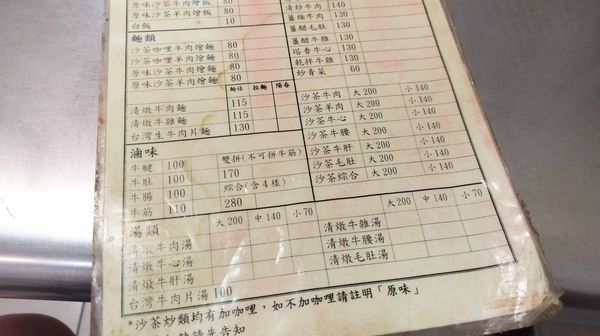 原味沙茶牛肉燴飯 80
原味沙茶羊肉燴飯 80
白飯 10
麵類
沙茶咖哩牛肉燴麵 80
沙茶咖哩羊肉燴麵 80
原味沙茶牛肉燴麵 80
原味沙茶羊肉燴麵 80
拉麵 陽春
清燉牛肉麵 115
清燉牛雜麵 115
台灣生牛肉片麵 130
滷味
牛腱 100 雙拼(不可拼牛筋)
牛肚 100 170
牛腸 100 綜合(含4樣)
牛筋 110 280
清炒牛肉 140
薑絲牛肉 130
薑醋毛肚 130
薑醋牛雜 130
塔香牛心 130
乾拌牛雜 130
炒青菜 60
沙茶牛肉 大200 小140
沙茶羊肉 大200 小140
沙茶牛心 大200 小140
沙茶牛腰 大200 小140
沙茶牛肝 大200 小140
沙茶毛肚 大200 小140
沙茶綜合 大200 小140
湯類 大200 中140 小70
清燉牛肉湯
清燉牛心湯
清燉牛肝湯
台灣牛肉片湯 100
大200 中140 小70
清燉牛雜湯
清燉牛腰湯
清燉毛肚湯
*沙茶炒類均有加咖哩，如不加咖哩請註明「原味」
請先告知